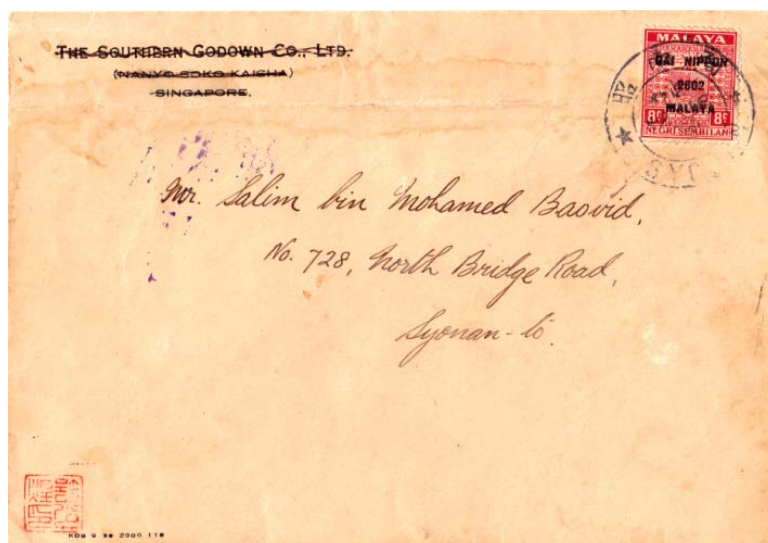 THE SOUTHERN GODOWN CO., LTD.
(NANYO SOKO KAISHA)
SINGAPORE.
MALAYA
DAI NIPPON
2602
MALAYA
8c 8c
NEGRI SEMBILAN
Mr. Salim bin Mohamed Basvid,
No. 728, North Bridge Road,
Syonan-to.